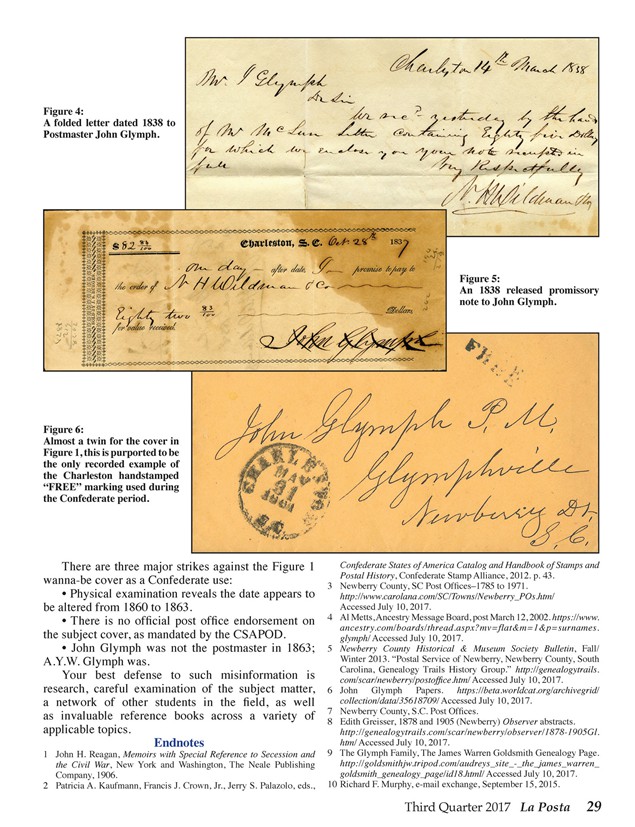 Figure 4:
A folded letter dated 1838 to
Postmaster John Glymph.
Charleston 14th March 1838
Mr. J Glymph
Dr Sir
We recd yesterday by the hand
of Mr McLure letter containing Eighty five Dollars
for which we enclose you your note receipted in
full
Very Respectfully
N. H Wildman & Co
$82 83/100
Charleston, S.C. Oct. 28th 1837
one day after date, I promise to pay to
the order of N H Wildman & Co
Eighty two 83/100 Dollars
for value received
John Glymph
Figure 5:
An 1838 released promissory
note to John Glymph.
FREE
John Glymph P. M,
Glymphville
Newberry Dt.
S. C.
CHARLESTON
MAY
31
1861
S.C.
Figure 6:
Almost a twin for the cover in
Figure 1, this is purported to be
the only recorded example of
the Charleston handstamped
“FREE” marking used during
the Confederate period.
There are three major strikes against the Figure 1
wanna-be cover as a Confederate use:
• Physical examination reveals the date appears to
be altered from 1860 to 1863.
• There is no official post office endorsement on
the subject cover, as mandated by the CSAPOD.
• John Glymph was not the postmaster in 1863;
A.Y.W. Glymph was.
Your best defense to such misinformation is
research, careful examination of the subject matter,
a network of other students in the field, as well
as invaluable reference books across a variety of
applicable topics.
Endnotes
1 John H. Reagan, Memoirs with Special Reference to Secession and
the Civil War, New York and Washington, The Neale Publishing
Company, 1906.
2 Patricia A. Kaufmann, Francis J. Crown, Jr., Jerry S. Palazolo, eds.,
Confederate States of America Catalog and Handbook of Stamps and
Postal History, Confederate Stamp Alliance, 2012. p. 43.
3 Newberry County, SC Post Offices–1785 to 1971.
http://www.carolana.com/SC/Towns/Newberry_POs.htm/
Accessed July 10, 2017.
4 Al Metts, Ancestry Message Board, post March 12, 2002. https://www.
ancestry.com/boards/thread.aspx?mv=flat&m=1&p=surnames.
glymph/ Accessed July 10, 2017.
5 Newberry County Historical & Museum Society Bulletin, Fall/
Winter 2013. “Postal Service of Newberry, Newberry County, South
Carolina, Genealogy Trails History Group.” http://genealogytrails.
com/scar/newberry/postoffice.htm/ Accessed July 10, 2017.
6 John Glymph Papers. https://beta.worldcat.org/archivegrid/
collection/data/35618709/ Accessed July 10, 2017.
7 Newberry County, S.C. Post Offices.
8 Edith Greisser, 1878 and 1905 (Newberry) Observer abstracts.
http://genealogytrails.com/scar/newberry/observer/1878-1905GI.
htm/ Accessed July 10, 2017.
9 The Glymph Family, The James Warren Goldsmith Genealogy Page.
http://goldsmithjw.tripod.com/audreys_site_-_the_james_warren_
goldsmith_genealogy_page/id18.html/ Accessed July 10, 2017.
10 Richard F. Murphy, e-mail exchange, September 15, 2015.
Third Quarter 2017 La Posta 29